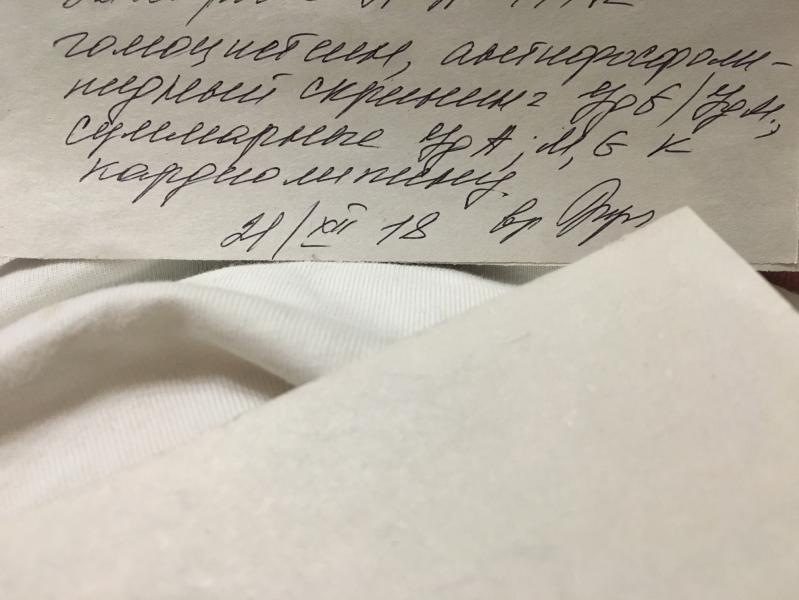 гомоцистеин, антифосфоли-
пидный скрининг IgG/IgM,
суммарные IgA, M, G к
кардиолипину.
21/XII 18 вр